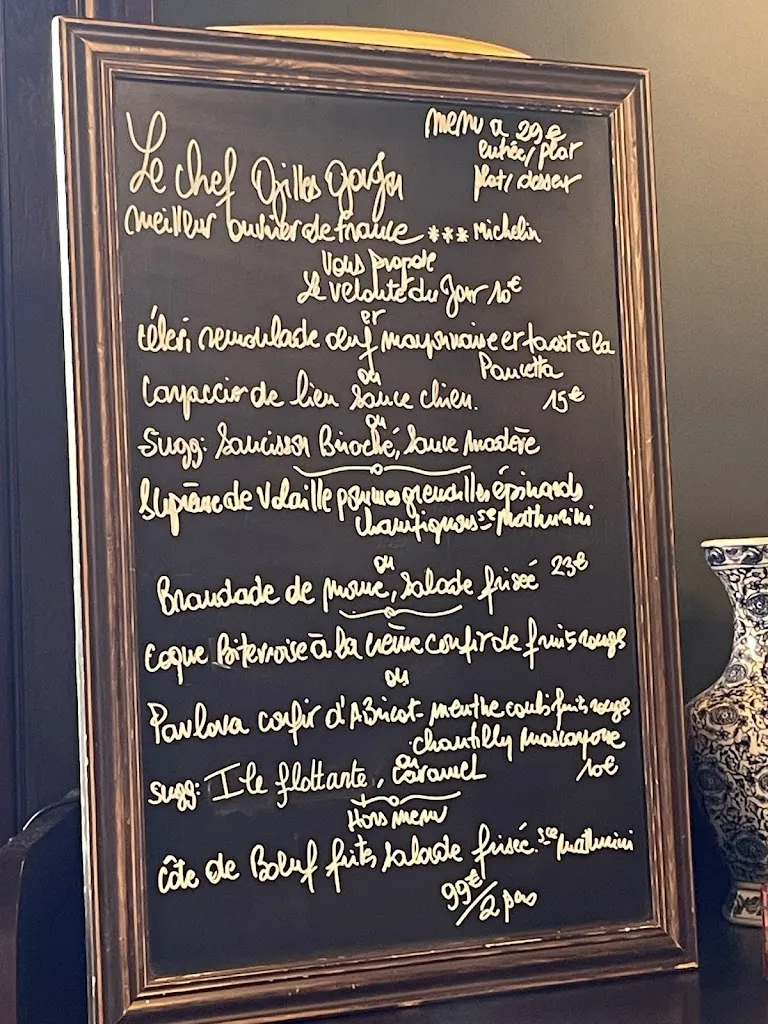 menu a 29€
entrée/plat
plat/dessert
Le chef Gilles
meilleur ouvrier de france *** Michelin
Vous propose
Le velouté du Jour 10€
et
Céleri remoulade œuf mayonnaise et toast à la
Pancetta
ou
Carpaccio de lieu sauce chien. 15€
ou
Sugg: Saucisson Brioché, sauce Madère
Suprême de Volaille pommes grenailles épinards
champignons sce mathurini
ou
Brandade de morue, salade frisée 23€
Coque Biterroise à la crème confit de fruits rouges
ou
Pavlova confit d'Abricot menthe coulis fruits rouges
chantilly mascarpone
ou
Sugg: Ile flottante, Caramel 10€
Hors menu
Côte de Bœuf frites salade frisée. sce mathurini
99€/2 pers